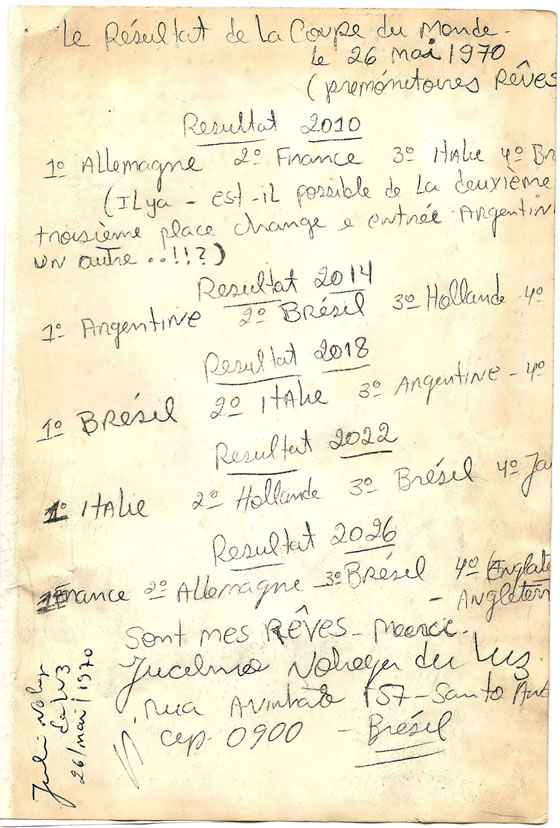 Le Résultat de La Coupe du Monde.
Le 26 mai 1970
(premónetoires Rêves
Resultat 2010
1º Allemagne 2º France 3º Italie 4º Br
(ILya - est-il possible de La deuxième
troisième place change e entrée Argentin
un autre ..!!?)
Resultat 2014
1º Argentine 2º Brésil 3º Hollande 4º
Resultat 2018
1º Brésil 2º Italie 3º Argentine - 4º
Resultat 2022
1º Italie 2º Hollande 3º Brésil 4º Ja
Resultat 2026
1º France 2º Allemagne 3º Brésil 4º (Englate
- Angleterr
Sont mes Rêves - Merci.
Jucelino Nobrega da Luz
rua 157 - Santo Ant
cep. 0900 - Brésil
da Luz
26/mai/1970